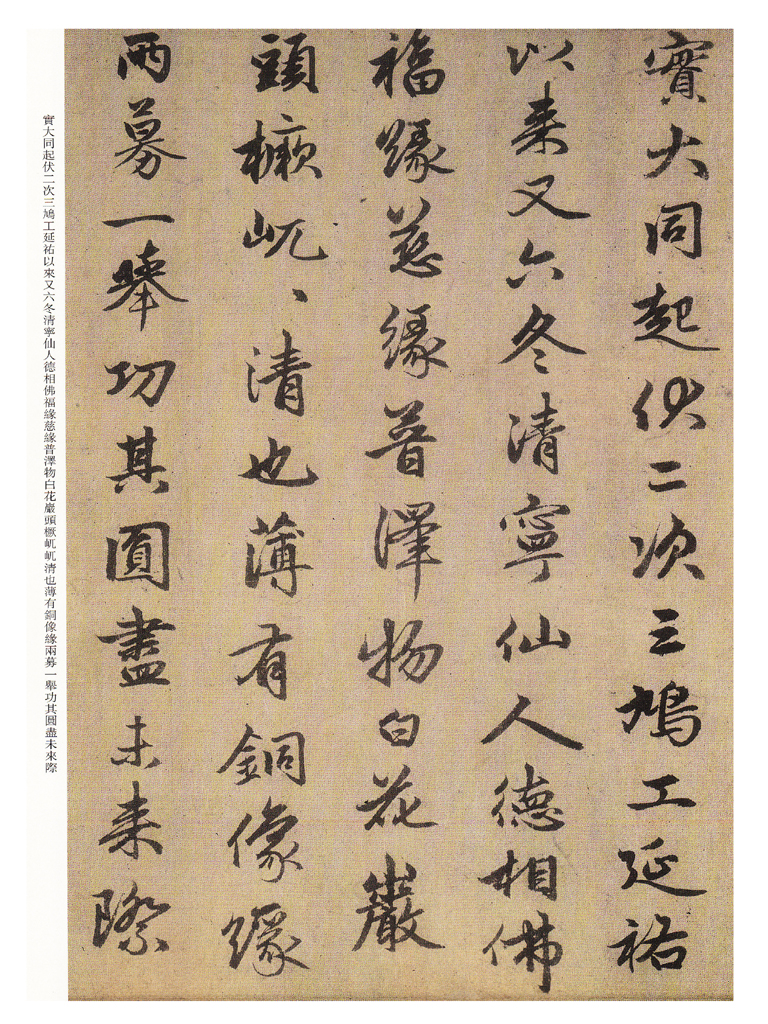 實大同起伏二次三鳩工延祐
以来又六冬清寧仙人德相佛
福緣慈緣普澤物白花巖
頭橛屼、清也薄有銅像緣
兩募一舉功其圓盡未来際
實大同起伏二次三鳩工延祐以來又六冬清寧仙人德相佛福緣慈緣普澤物白花巖頭橛屼屼清也薄有銅像緣兩募一舉功其圓盡未來際